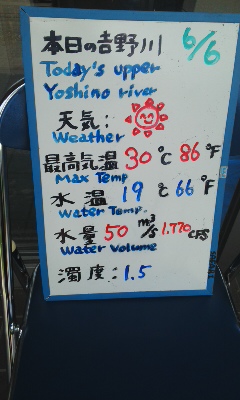 本日の吉野川 6/6
Today's upper
Yoshino river
天気:
Weather
最高気温 30℃ 86°F
Max Temp
水温 19℃ 66°F
Water Temp.
水量 50 m³/s 1.770 CFS
Water Volume
濁度:1.5